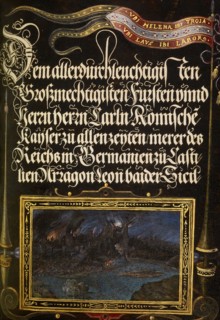 VBI HELENA IBI TROIA.
VBI LAVS IBI LABOR.
Dem allerdurchleuchtigisten
Großmechtigisten Fürsten vnnd
Herrn herrn Carln Römische
Kayser zu allen zeyten merer des
Reichs in Germanien zu Casti
llien Arragon Leon baider Sicil